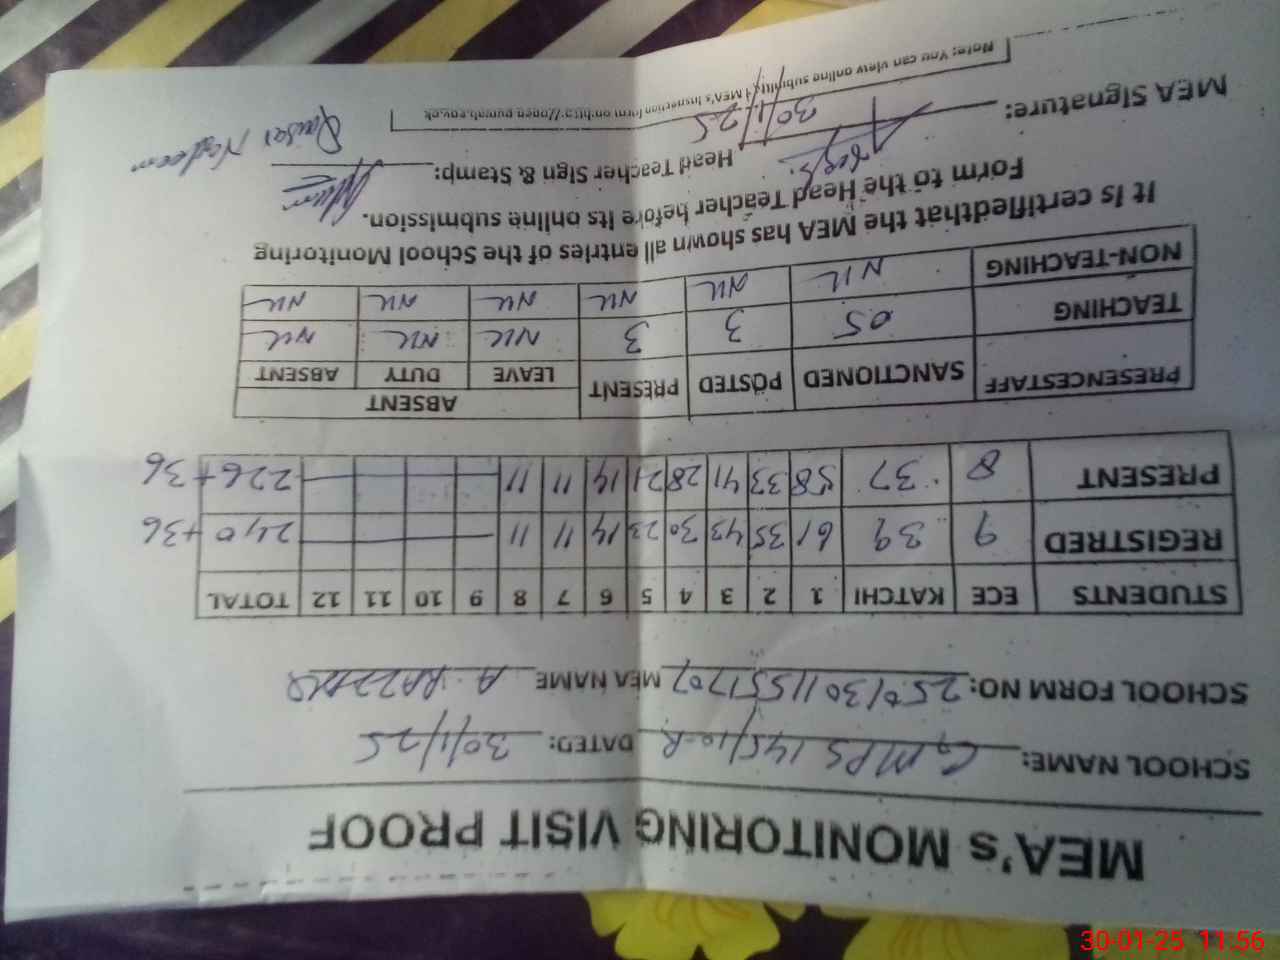 MEA's MONITORING VISIT PROOF
SCHOOL NAME: GMPS 145/10-R DATED: 30/1/25
SCHOOL FORM NO: 25013011551707 MEA NAME A. RAZZAQ
STUDENTS ECE KATCHI 1 2 3 4 5 6 7 8 9 10 11 12 TOTAL
REGISTRED 9 39 61 35 43 30 23 14 11 11 240+36
PRESENT 8 37 58 33 41 28 21 14 11 11 226+36
PRESENCESTAFF SANCTIONED POSTED PRESENT ABSENT
LEAVE DUTY ABSENT
TEACHING 05 3 3 NIL NIL NIL
NON-TEACHING NIL NIL NIL NIL NIL NIL
It is certifiedthat the MEA has shown all entries of the School Monitoring
Form to the Head Teacher before its online submission.
MEA Signature: Head Teacher Sign & Stamp:
30/1/25 Qaisar Nadeem
Note: You can view online submitted MEA's Inspection form on http://open.punjab.gov.pk
30-01-25 11:56